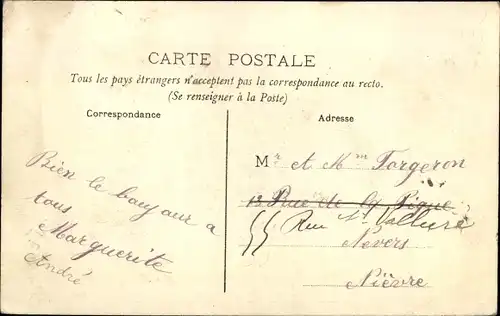 CARTE POSTALE
Tous les pays étrangers n'acceptent pas la correspondance au recto.
(Se renseigner à la Poste)
Correspondance
Adresse
Bien le bonjour a
tous
Marguerite
André
Mr et Mm Forgeron
13 Rue de la Pique
55 Rue St
Nevers
Nièvre